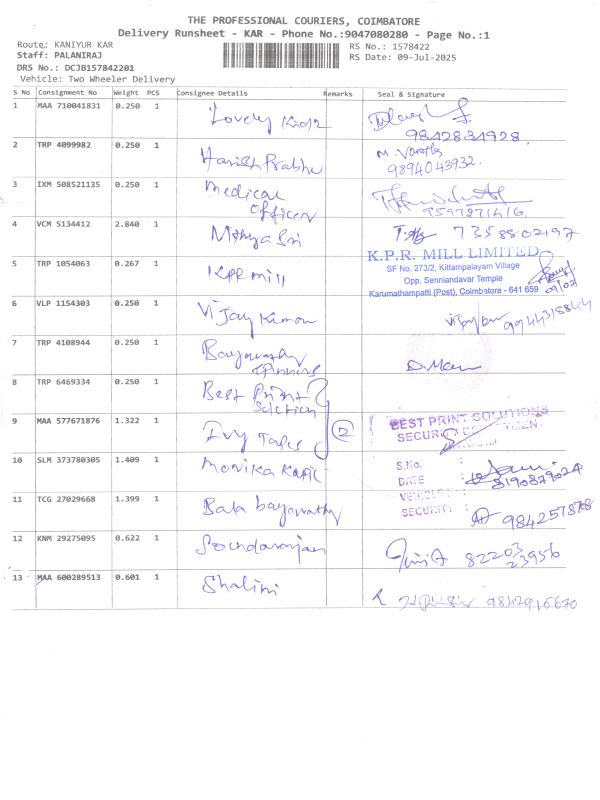 THE PROFESSIONAL COURIERS, COIMBATORE
Delivery Runsheet - KAR - Phone No.:9047080280 - Page No.:1
Route: KANIYUR KAR RS No.: 1578422
Staff: PALANIRAJ RS Date: 09-Jul-2025
DRS No.: DCJB157842201
Vehicle: Two Wheeler Delivery
S No Consignment No Weight PCS Consignee Details Remarks Seal & Signature
1 MAA 710041831 0.250 1 Lovely Kidz
9842834928
2 TRP 4099982 0.250 1 Harish Prabhu M. Varatha
9894043932.
3 IXM 508521135 0.250 1 Medical
officer
9597271416.
4 VCM 5134412 2.840 1 Mithya Sri 7358802197
K.P.R. MILL LIMITED
SF No. 273/2, Kittampalayam Village
5 TRP 1054063 0.267 1 KPR mill Opp. Senniandavar Temple
Karumathampatti (Post), Coimbatore - 641 659 09/07
6 VLP 1154303 0.250 1 Vijay Kumar 9944315844
7 TRP 4108944 0.250 1 Bayavathy
Spinners
8 TRP 6469334 0.250 1 Best Print
Solution
9 MAA 577671876 1.322 1 Ivy Tales 2 BEST PRINT SOLUTIONS
SECURITY DEPARTMENT
10 SLM 373780305 1.409 1 Monika Kapil S.No. :
DATE : 8190879024
VEHICLE :
11 TCG 27029668 1.399 1 Bala bayavathy SECURITY : 984257878
12 KNM 29275095 0.622 1 Soundarajan 82203
23956
13 MAA 600289513 0.601 1 Shalini 9842916670